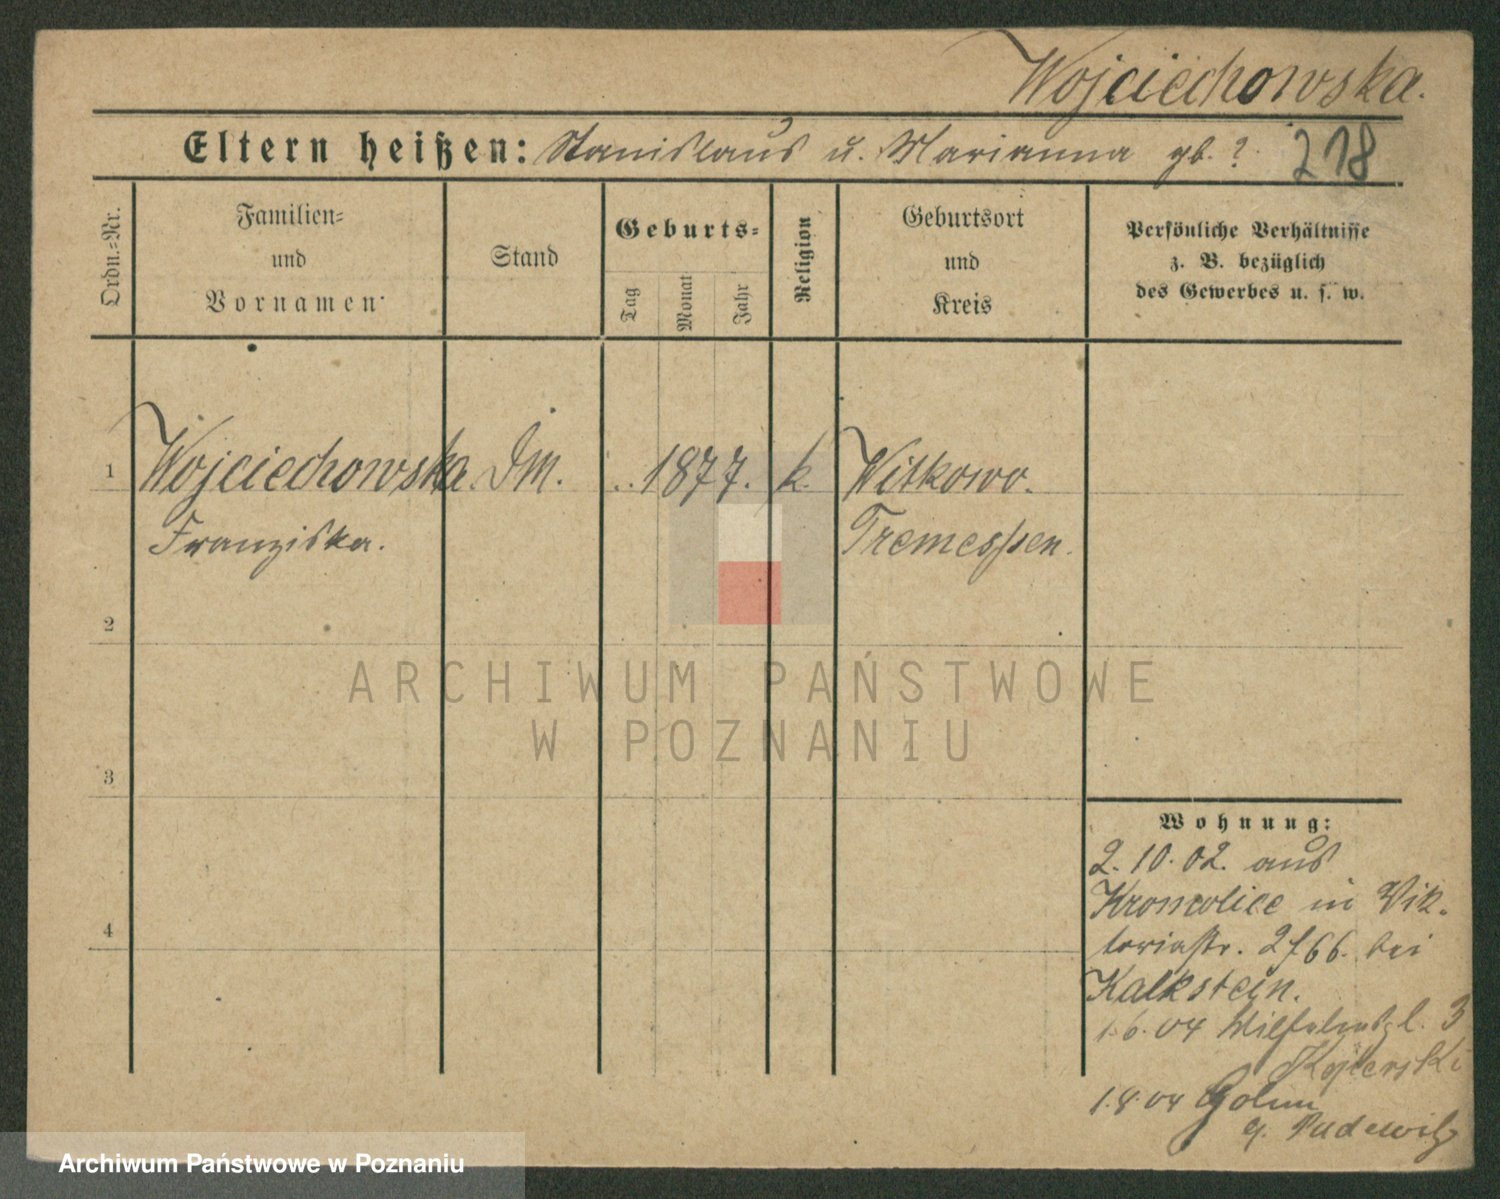 Wojciechowska.
Eltern heißen: Stanislaus u. Marianna gb. ? 218
Ordn.=Nr.
Familien=
und
Vornamen
Stand
Geburts=
Tag
Monat
Jahr
Religion
Geburtsort
und
Kreis
Persönliche Verhältnisse
z. B. bezüglich
des Gewerbes u. s. w.
1 Wojciechowska. Dm. .. 1877. k. Witkowo.
Franziska. Tremessen.
2
3
4
Wohnung:
2.10.02. aus
in Vik-
toriastr. bei
Kalkstein.
1.6.04 Wilhelmspl. 3
1.8.04
Pudewitz
ARCHIWUM PAŃSTWOWE
W POZNANIU
Archiwum Państwowe w Poznaniu